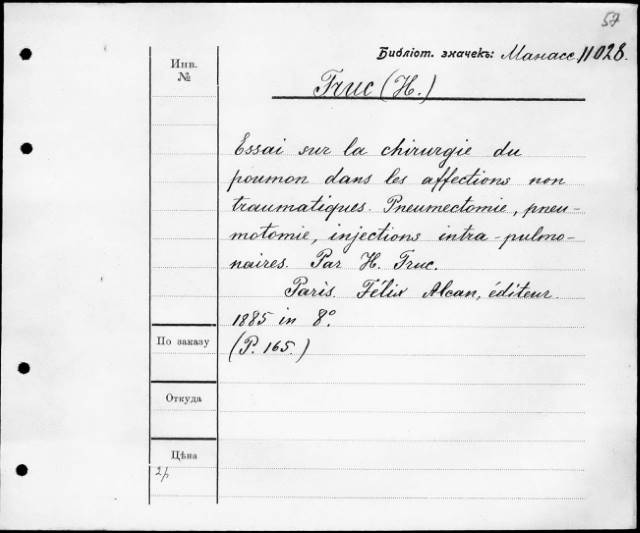 57
Библіот. значекъ: Манасс. 11028.
Инв.
№
Truc (H.)
Essai sur la chirurgie du
poumon dans les affections non
traumatiques. Pneumectomie, pneu-
motomie, injections intra-pulmo-
naires. Par H. Truc.
Paris. Félix Alcan, éditeur.
1885 in 8º.
(P. 165.)
По заказу
Откуда
Цѣна